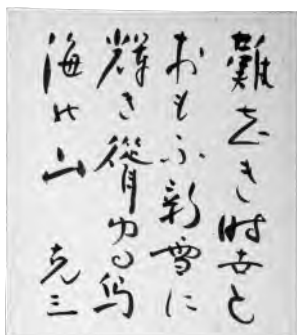 難しき時世と
おもふ新雪に
輝き聳ゆる鳥
海の山 克三